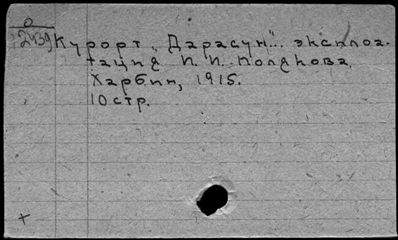 0
2439 Курорт „Дарасун". эксплоа-
тация П. И. Полянова.
Харбин, 1915.
10 стр.
+